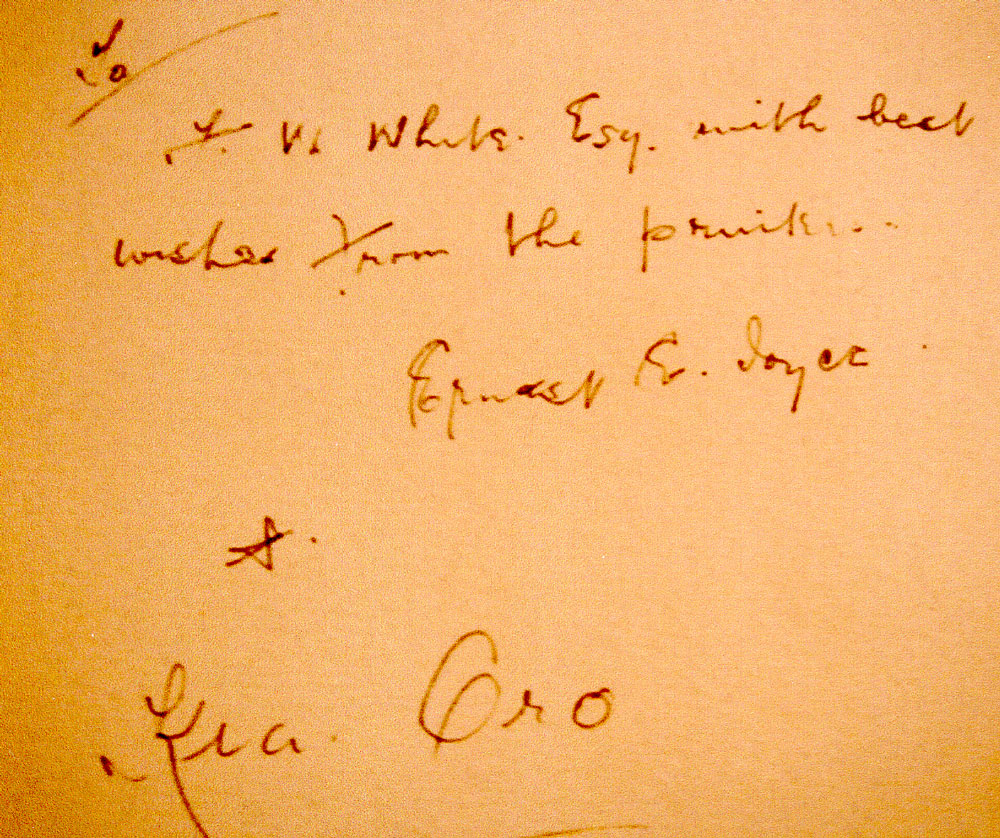 To
F. W. White. Esq. with best
wishes from the
Ernest E. Joyce
Kia. Oro